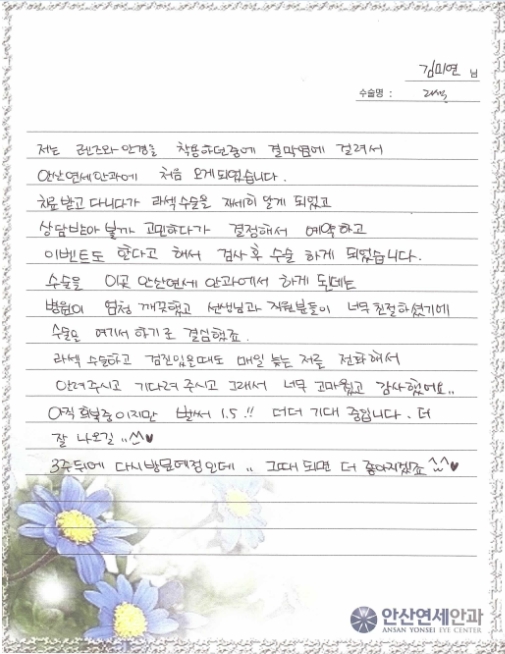 김미연 님
수술명 : 라섹
저는 렌즈와 안경을 착용하던중에 결막염에 걸려서
안산연세안과에 처음 오게되었습니다.
치료받고 다니다가 라섹수술을 자세히 알게 되었고
상담받아 볼까 고민하다가 결정해서 예약하고
이벤트도 한다고 해서 검사후 수술 하게 되었습니다.
수술을 이곳 안산연세 안과에서 하게 된데는
병원이 엄청 깨끗했고 선생님과 직원분들이 너무친절하셨기에
수술을 여기서하기로 결심했죠.
라섹 수술하고 검진있을때도 매일 늦는 저를 전화해서
알려주시고 기다려 주시고 그래서 너무 고마웠고 감사했어요..
아직 회복중이지만 벌써 1.5 !! 더더 기대 중입니다. 더
잘 나오길 ..^^♥
3주뒤에 다시방문예정인데 .. 그때 되면 더 좋아지겠죠 ^^♥
안산연세안과
ANSAN YONSEI EYE CENTER